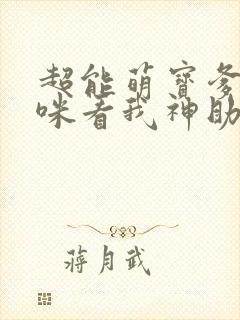 超能萌寶爹
咪看我神助
蔣月武